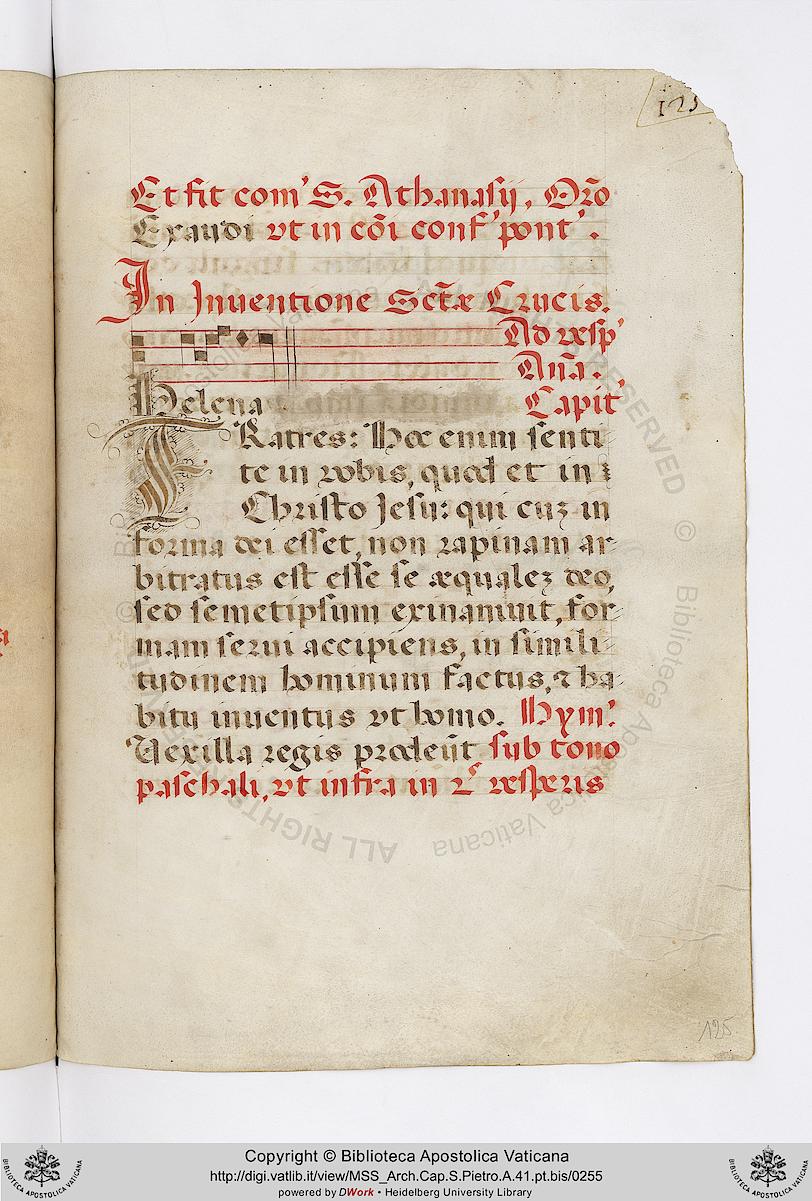 125
Et fit com' S. Athanasij, Orõ
Exaudi vt in cõi conf' pont'.
In Inuentione Sctæ Crucis.
Ad vesp'
Aña.
Helena
Capit'
FRatres: Hoc enim senti-
te in vobis, quod et in
Christo Jesu: qui cuʒ in
forma dei esset, non rapinam ar-
bitratus est esse se æqualeʒ deo,
sed semetipsum exinaniuit, for-
mam serui accipiens, in simili-
tudinem hominum factus, ⁊ ha-
bitu inuentus vt homo. Hym'.
Vexilla regis prodeũt sub tono
paschali, vt infra in 2.ˢ vesperis
125
Copyright © Biblioteca Apostolica Vaticana
http://digi.vatlib.it/view/MSS_Arch.Cap.S.Pietro.A.41.pt.bis/0255
powered by DWork • Heidelberg University Library